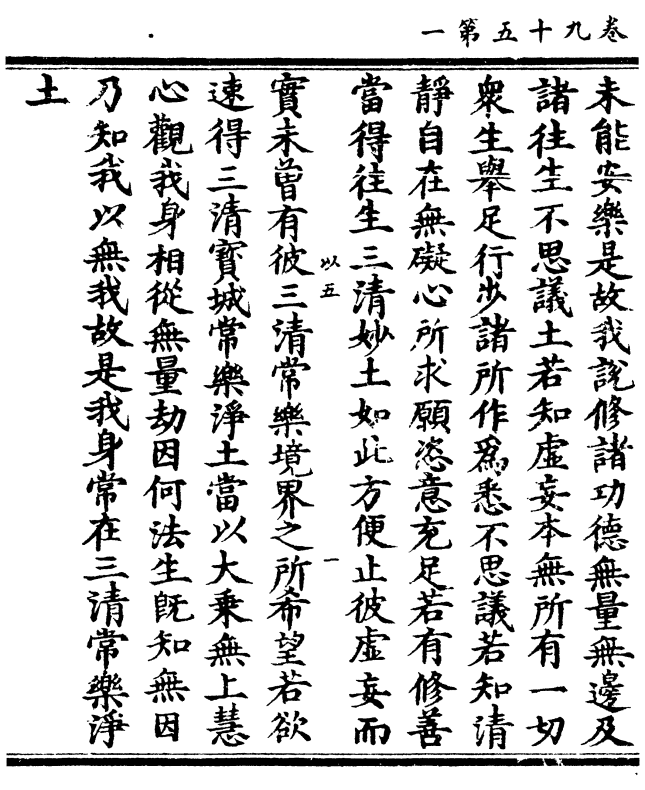 卷九十五第一
未能安樂是故我説修諸功德無量無邊及
諸往生不思議土若知虛妄本無所有一切
衆生舉足行步諸所作爲悉不思議若知清
靜自在無礙心所求願恣意充足若有修善
當得往生三清妙土如此方便止彼虛妄而
以五
一
實未曾有彼三清常樂境界之所希望若欲
速得三清寶城常樂淨土當以大乘無上慧
心觀我身相從無量劫因何法生旣知無因
乃知我以無我故是我身常在三清常樂淨
土